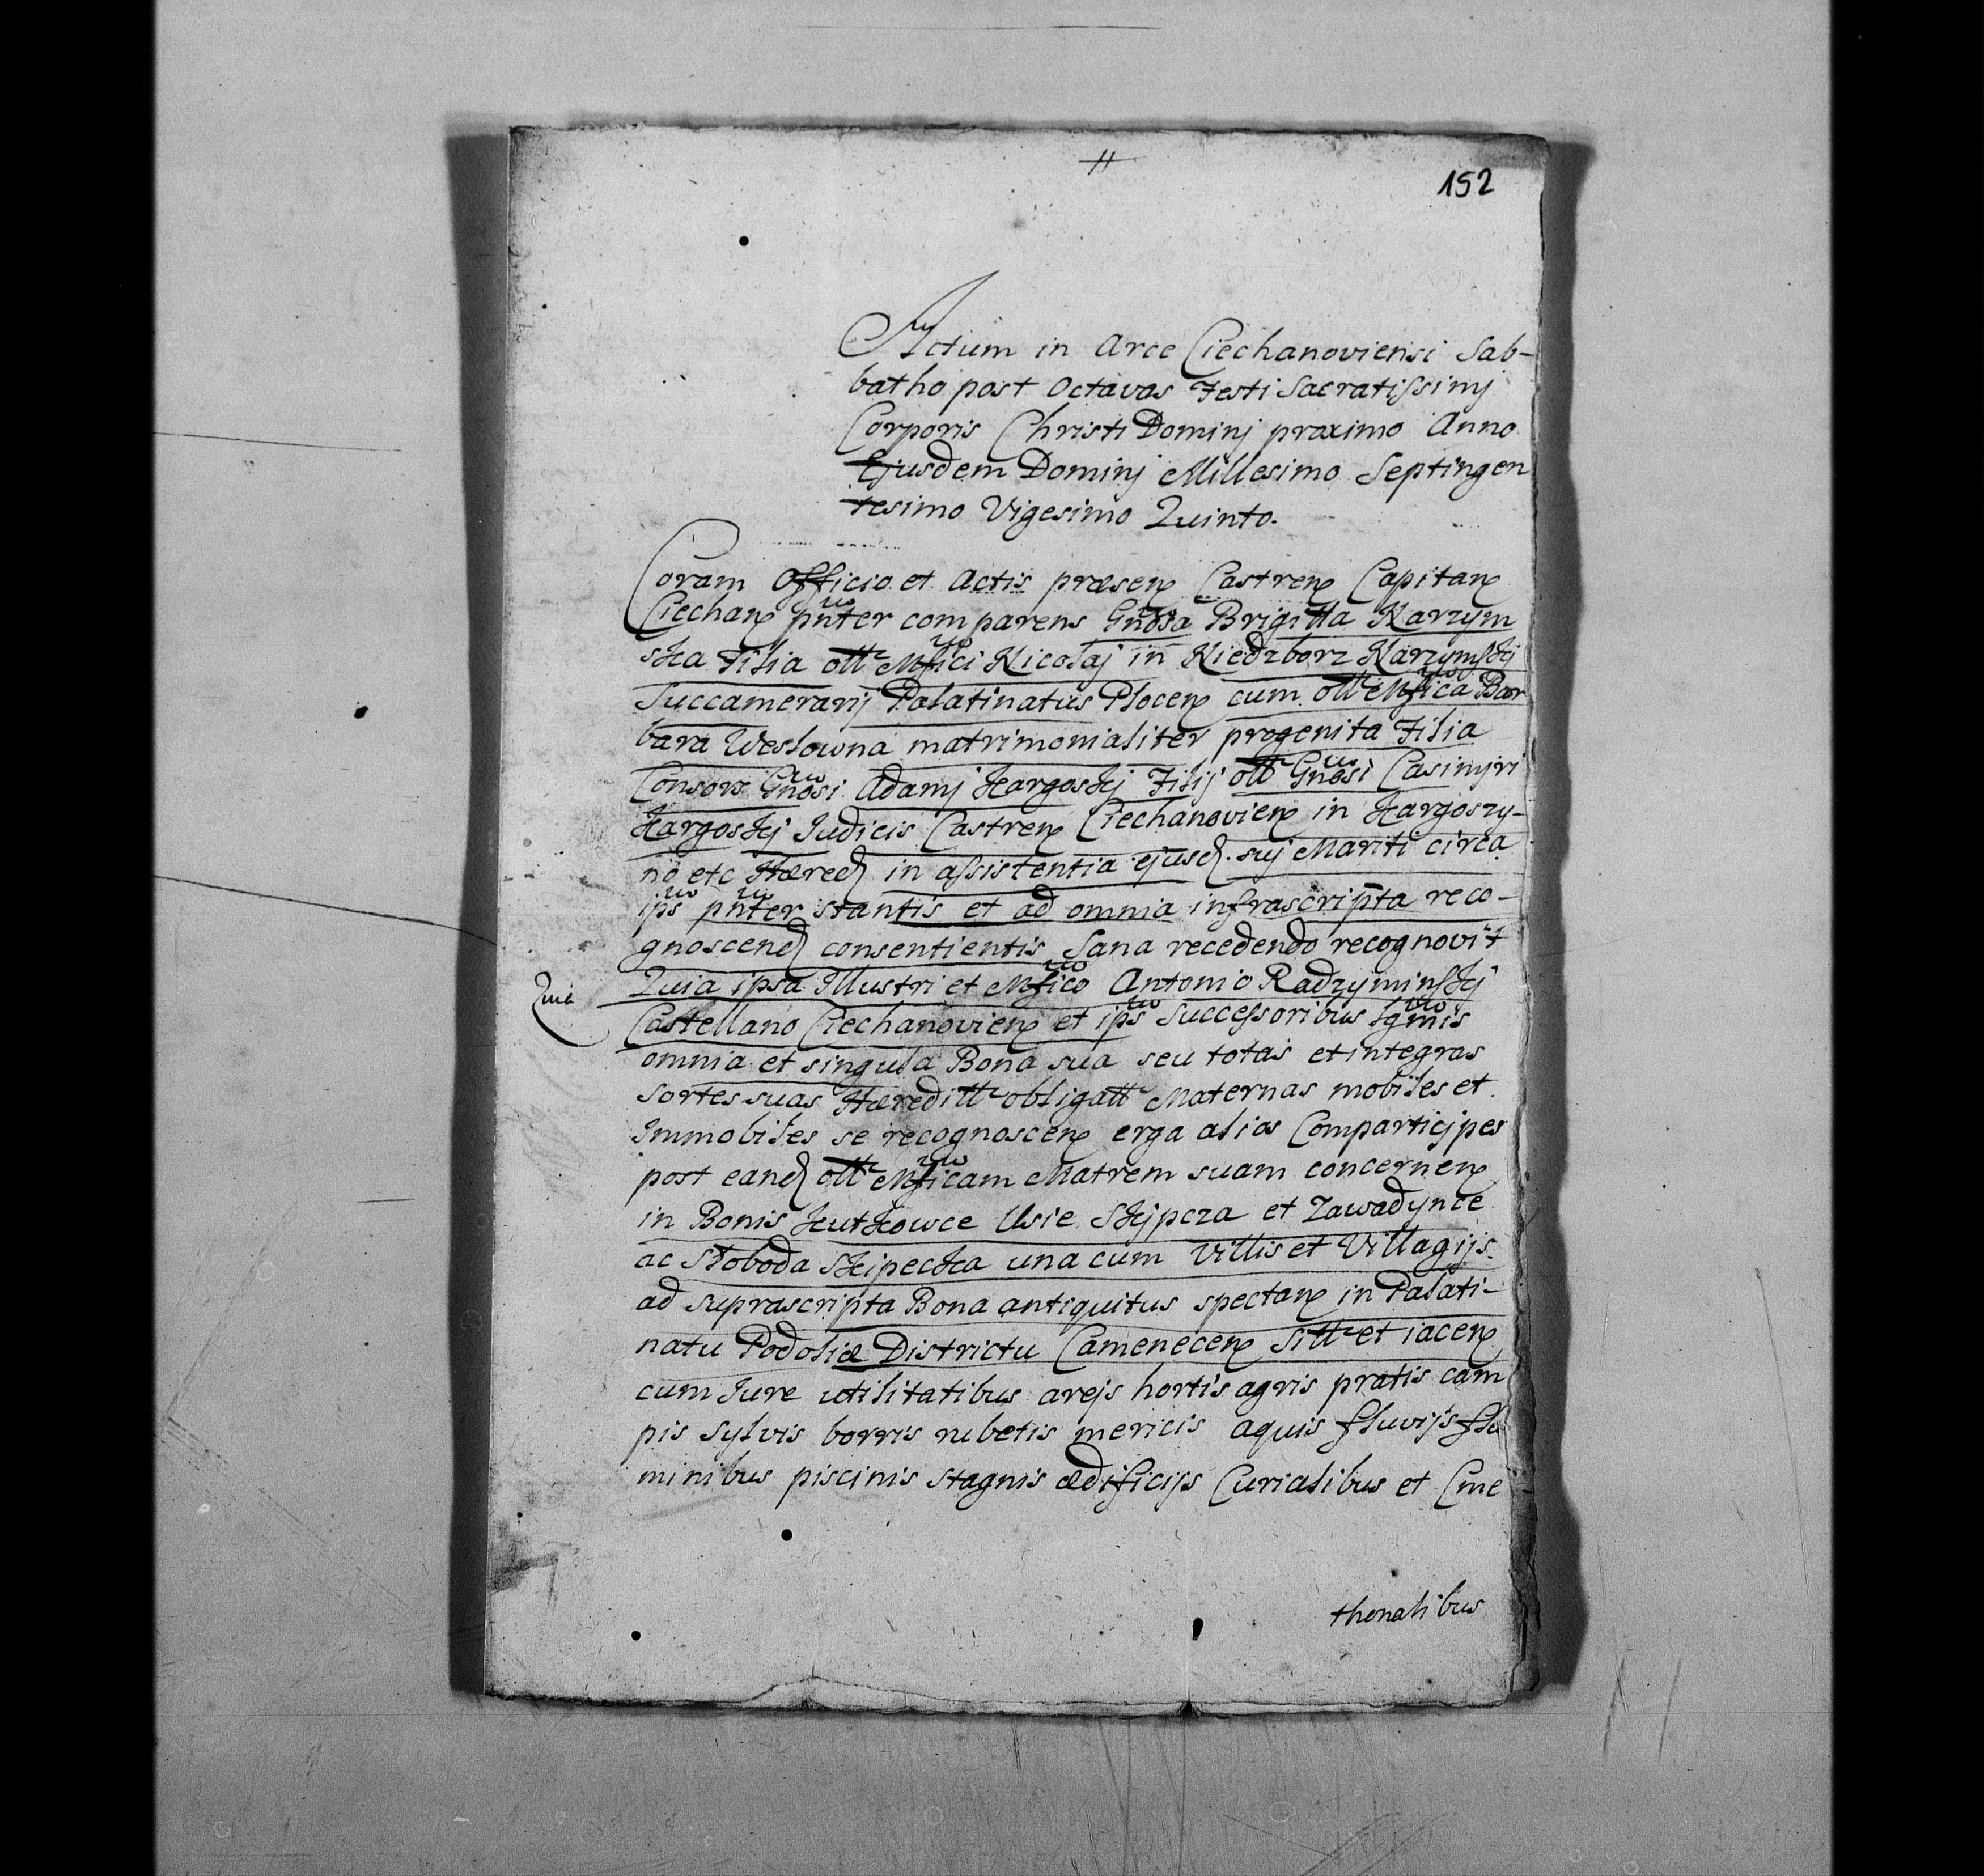 152
Actum in Arce Ciechanoviensi Sab-
batho post Octavas Festi Sacratissimj
Corporis Christi Dominj proximo Anno
Ejusdem Dominj Millesimo Septingen
tesimo Vigesimo Quinto.
Coram Officio et Actis præsen Castren Capitan
Ciechan pnter comparens Gnosa Brigitta Narzym
ska Filia olt Mfici Nicolaj in Niedzborz Narzymskj
Succamerarij Palatinatus Plocen cum olt Mfica Bar
bara Weslowna matrimonialiter progenita Filia
Consors Gnosi Adamj Kargoskj Filij olt Gnosi Casimiri
Kargoskj Judicis Castren Ciechanovien in Kargoszy-
no etc Hæred in assistentia ejusd suj Mariti circa
ips pnter stantis et ad omnia infrascripta reco-
gnoscend consentientis Sana recedendo recognovit
Quia
Quia ipsa Illustri et Mfico Antonio Radzyminskj
Castellano Ciechanovien et ips Successoribus lgmis
omnia et singula Bona sua seu totas et integras
sortes suas Hæreditt obligatt Maternas mobiles et
Immobiles se recognoscen erga alios Comparticipes
post eand olt Mficam Matrem suam concernen
in Bonis Kutkowce Usie Skjpcza et Zawadynce
ac Stoboda Skipecka una cum Villis et Villagijs
ad suprascripta Bona antiquitus spectan in Palati-
natu Podoliæ Districtu Camenecen Sitt et iacen
cum Jure utilitatibus arejs hortis agris pratis cam
pis sylvis borris rubetis mericis aquis fluvijs flu
minibus piscinis stagnis ædificijs Curialibus et Cme
thonalibus